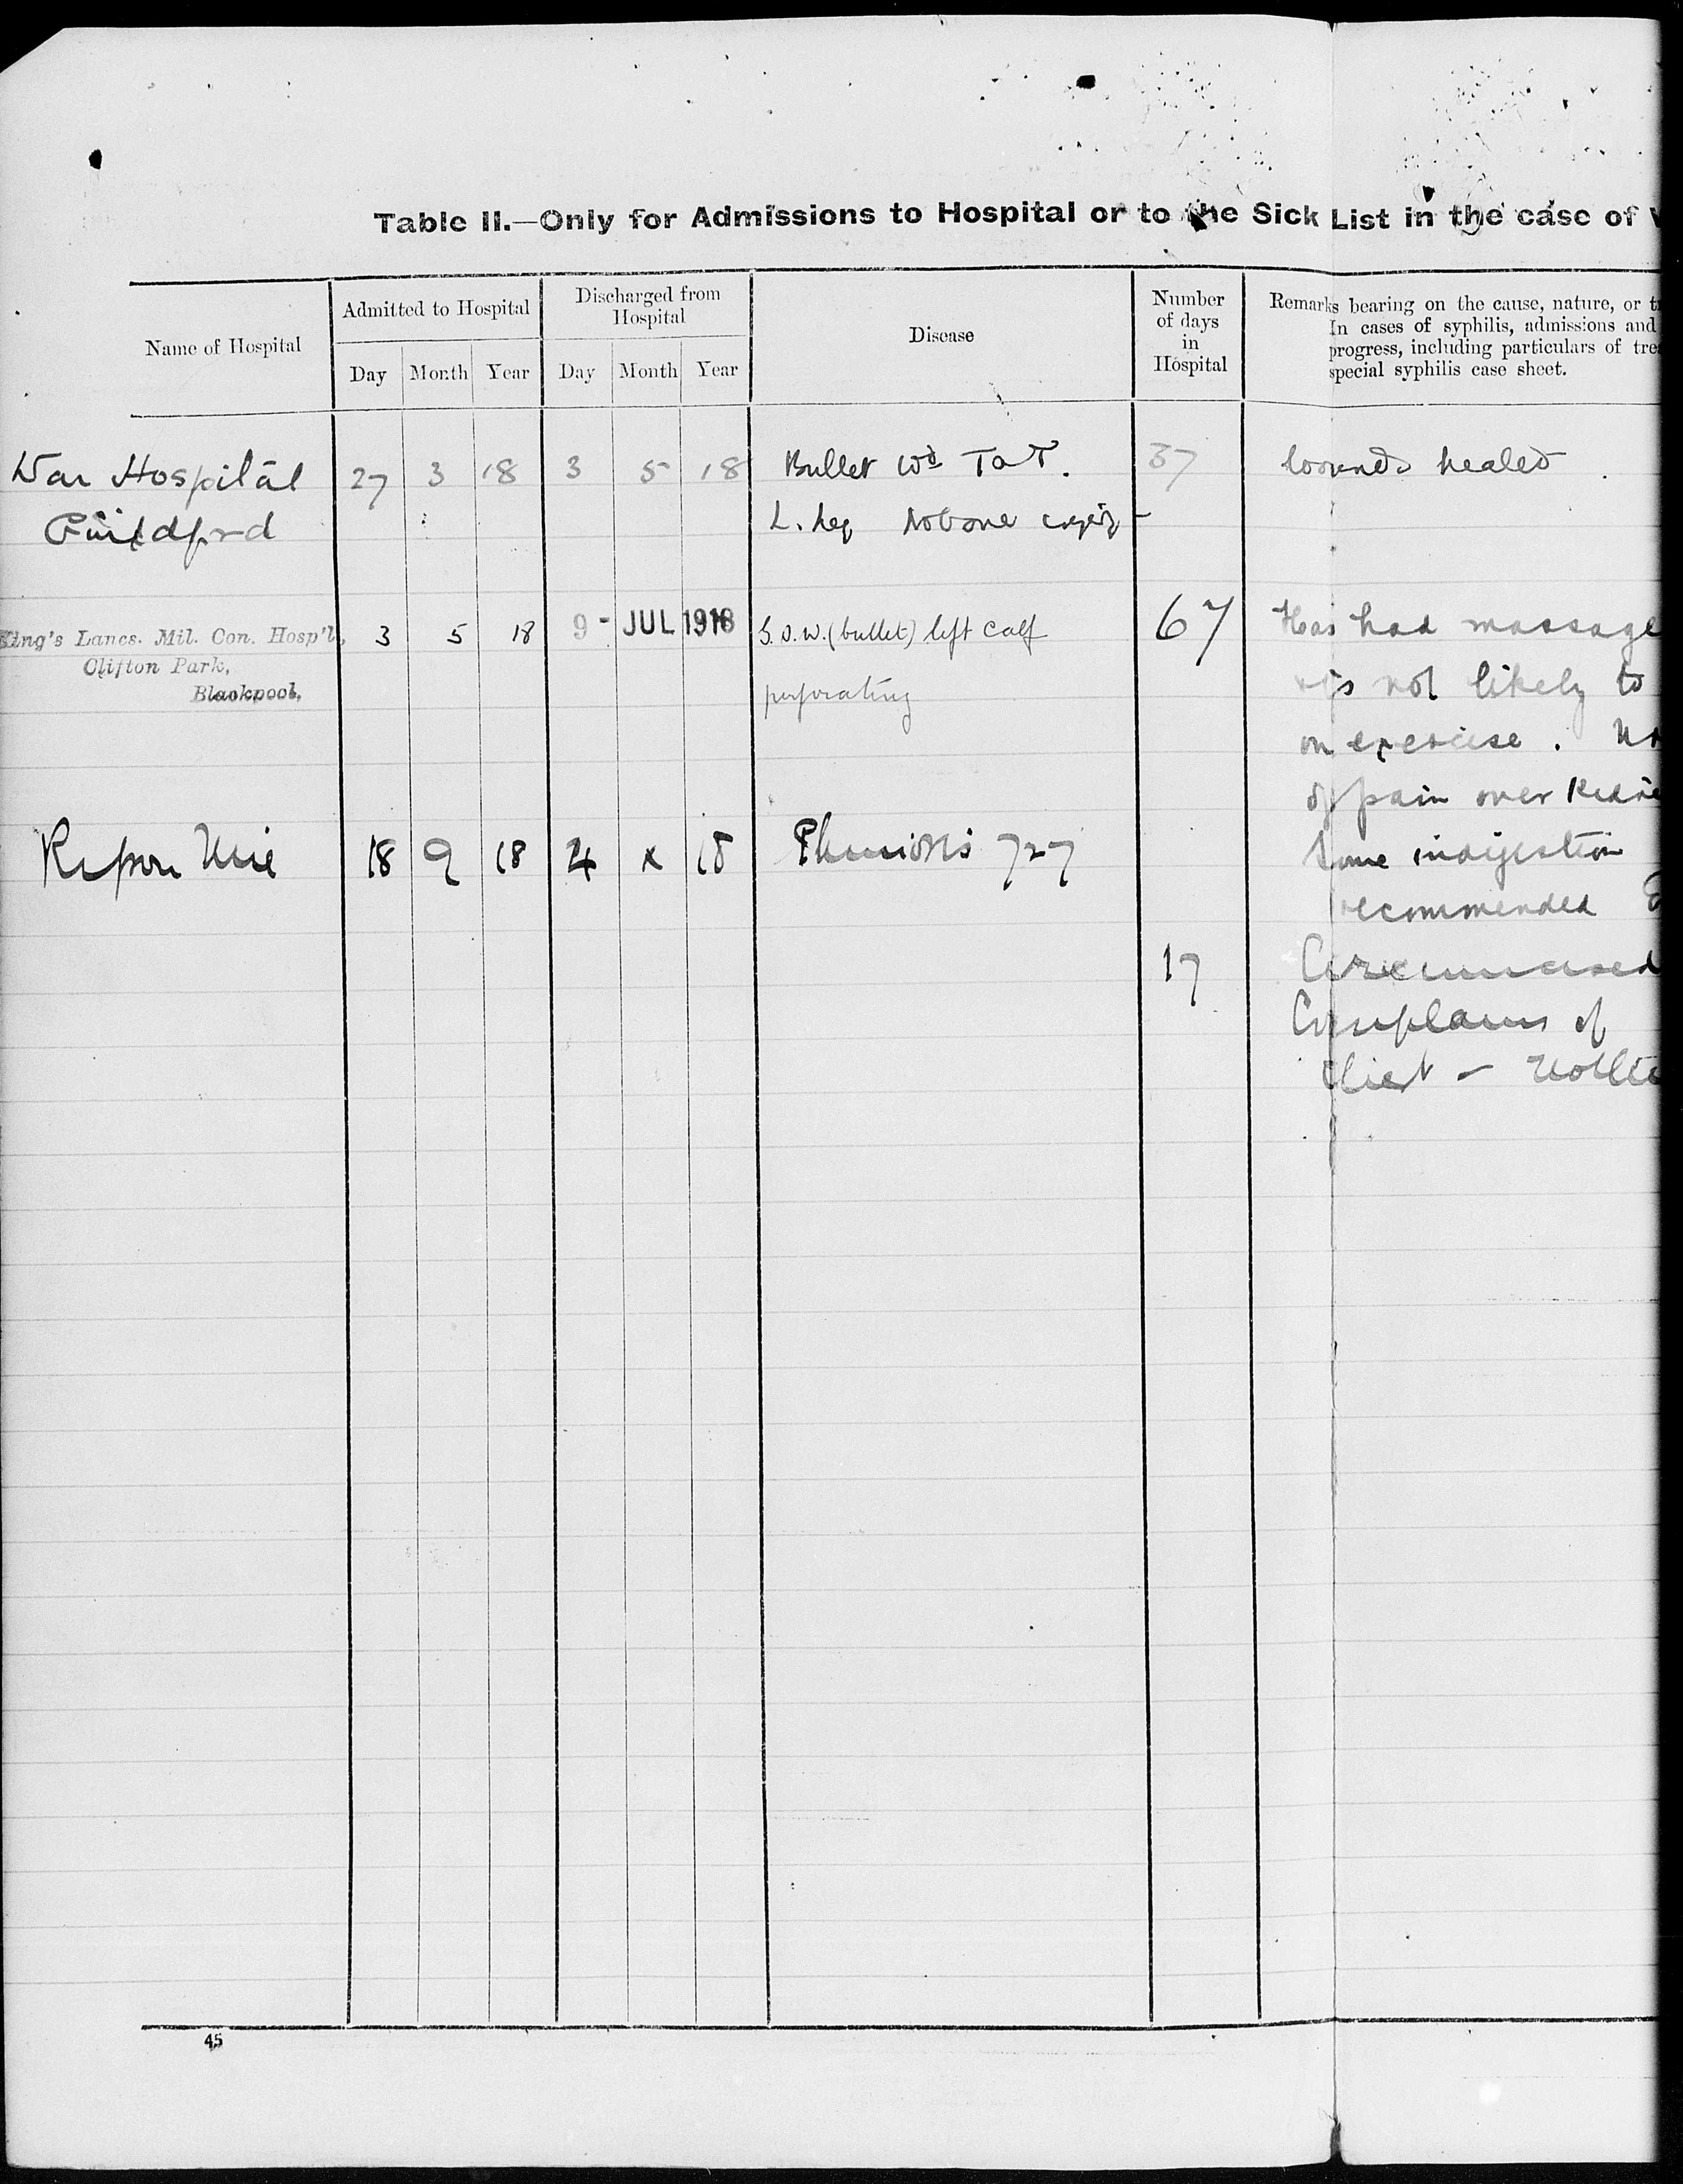 Table II.—Only for Admissions to Hospital or to the Sick List in the case of
Name of Hospital
Admitted to Hospital
Day Month Year
Discharged from
Hospital
Day Month Year
Disease
Number
of days
in
Hospital
Remarks bearing on the cause, nature, or
In cases of syphilis, admissions and
progress, including particulars of
special syphilis case sheet.
War Hospital 27 3 18 3 5 18 Bullet Wd T a T. 37 wounds healed
Guildford L. Leg No bone
King's Lancs. Mil. Con. Hosp'l, 3 5 18 9 - JUL 1918 G.S.W. (bullet) left calf 67 Has had massage
Clifton Park,
Blackpool, perforating is not likely to
on exercise.
of pain over
Ripon 18 9 18 4 x 18 Phimosis 727 Some indigestion
recommended
17 Circumcised
Complains of
diet -
45